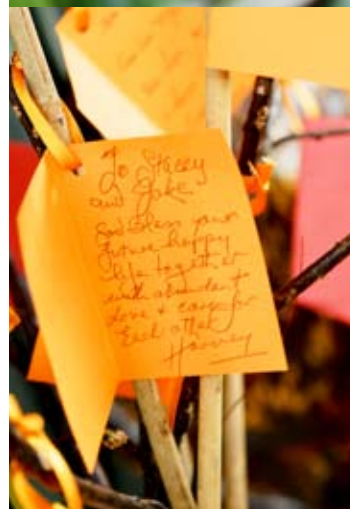 To Stacey
and Jake
God Bless your
future happy
life together
with abundant
love & care for
Each other
Harvey